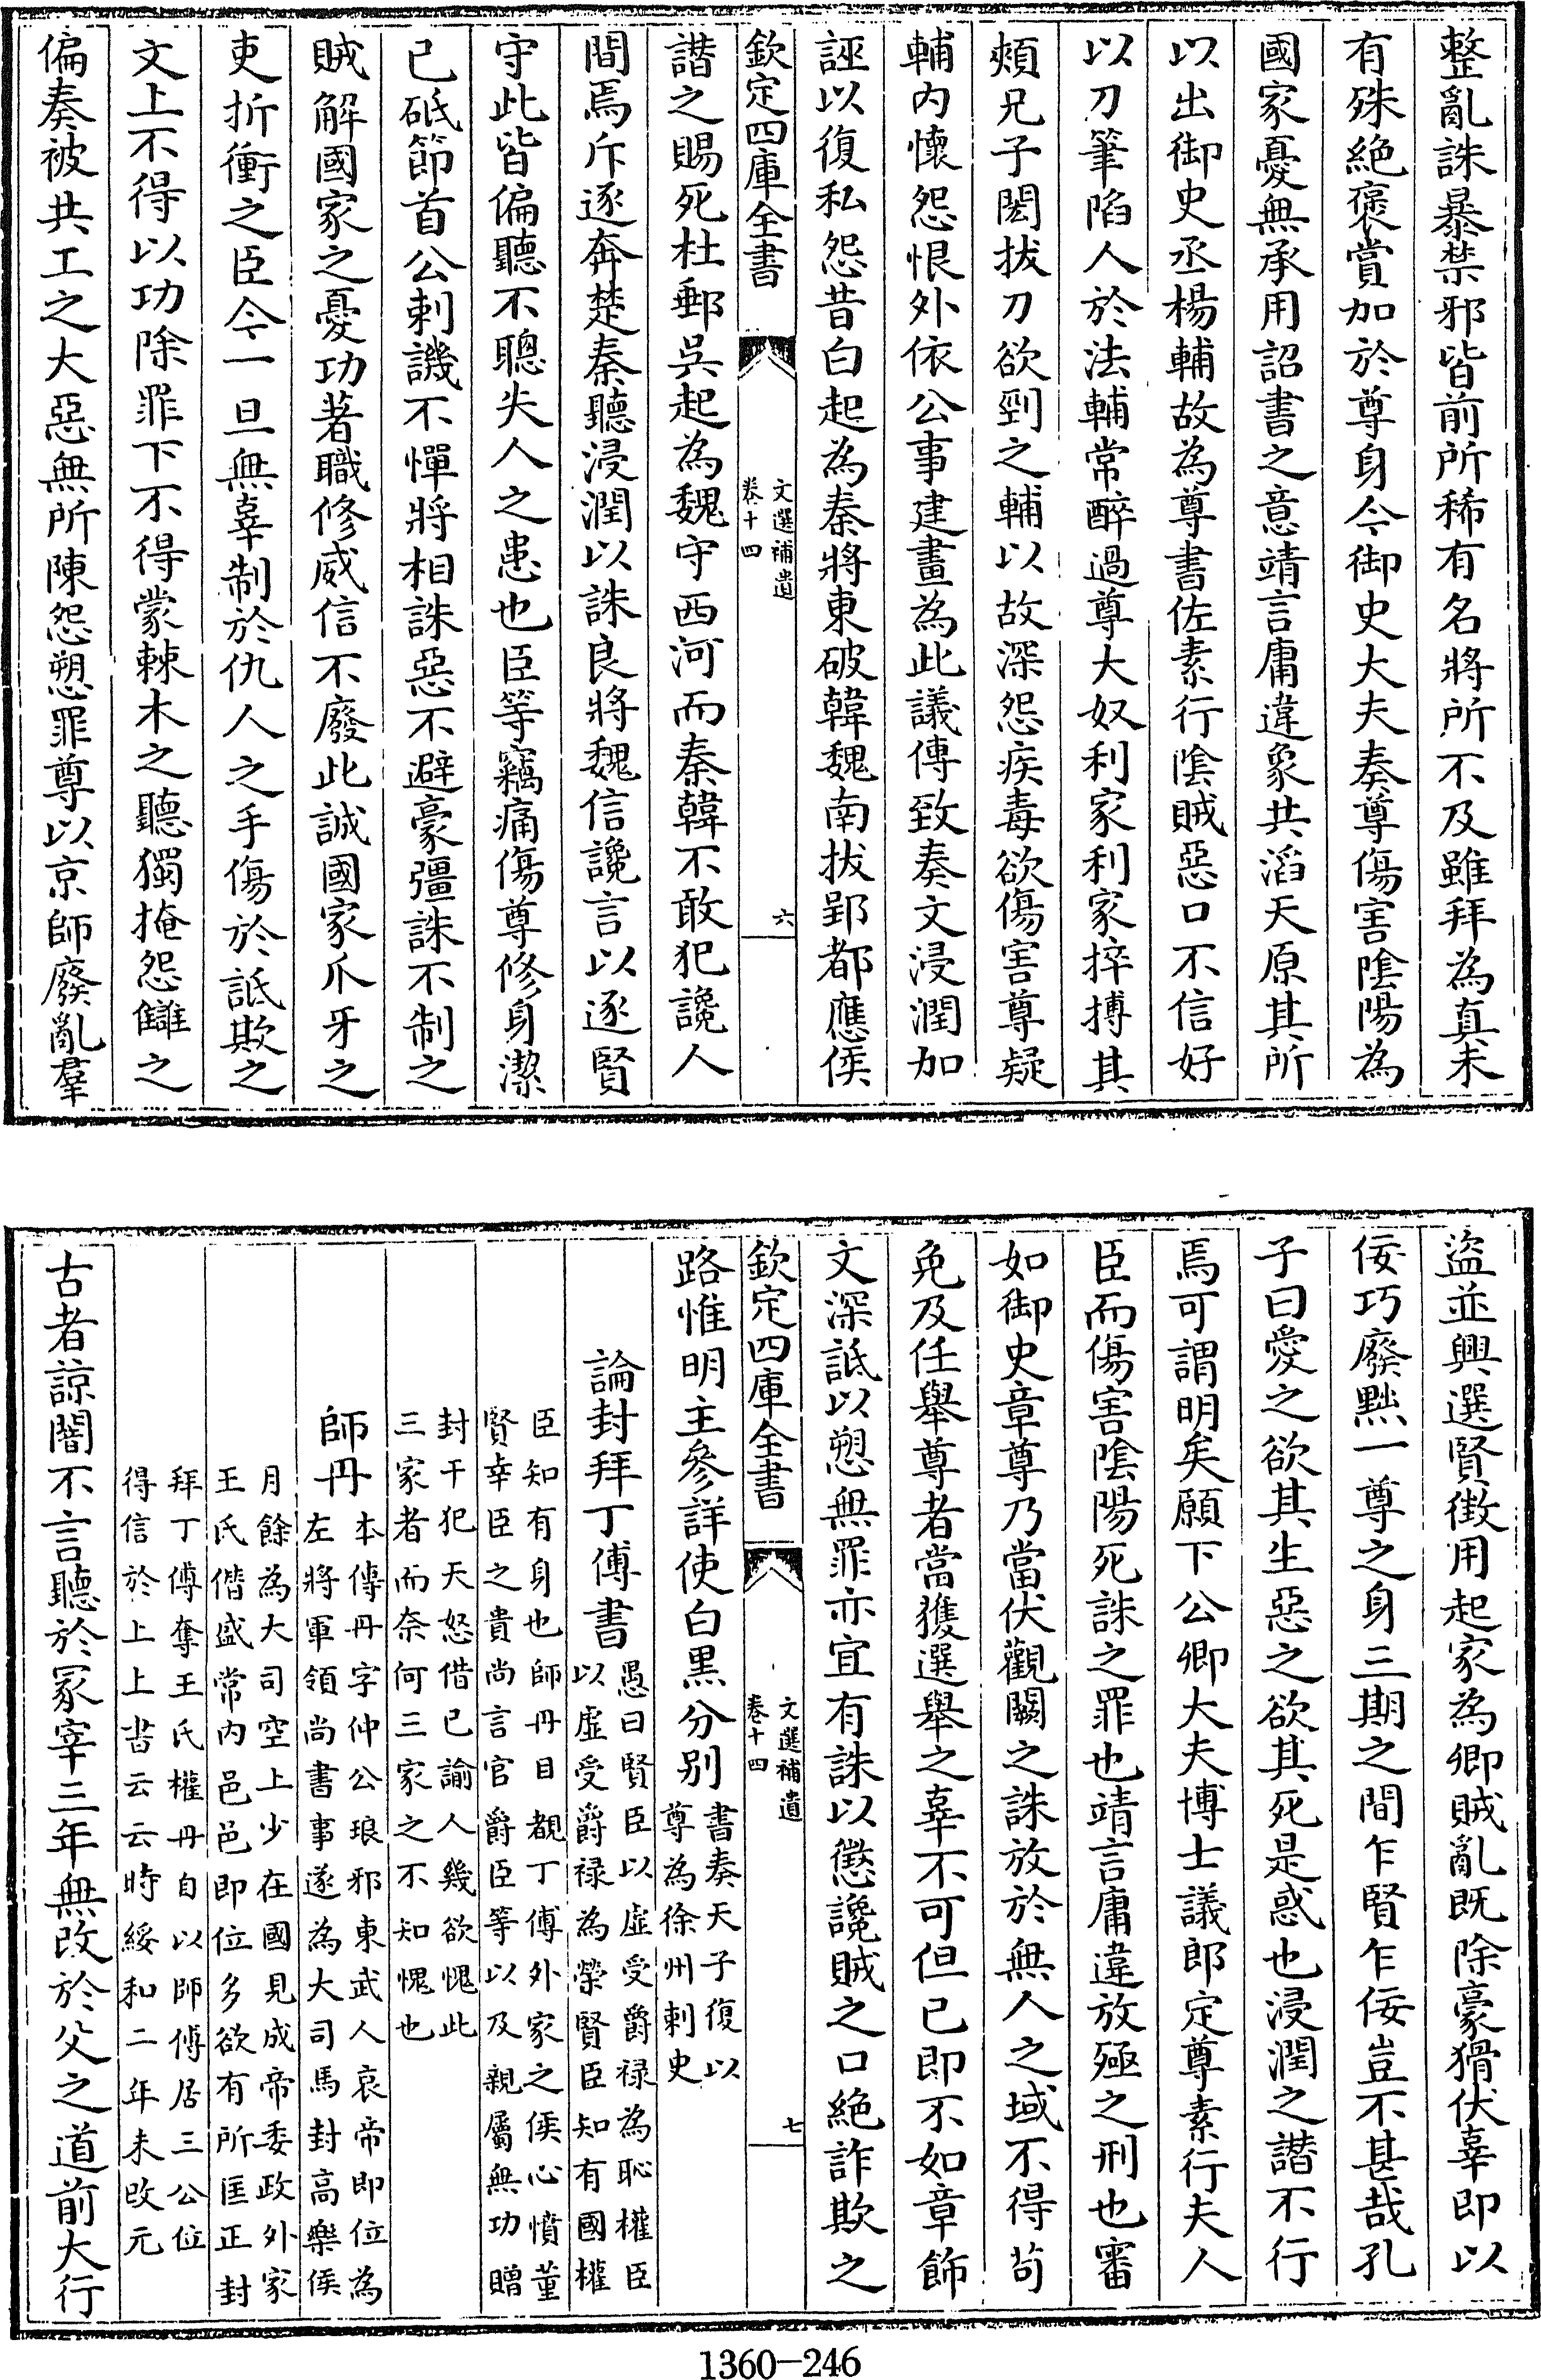 整亂誅暴禁邪皆前所稀有名將所不及雖拜為真未
有殊絶褒賞加於尊身今御史大夫奏尊傷害隂陽為
國家憂無承用詔書之意靖言庸違象共滔天原其所
以出御史丞楊輔故為尊書佐素行隂賊惡口不信好
以刀筆陷人於法輔常醉過尊大奴利家利家捽搏其
頰兄子閎拔刀欲剄之輔以故深怨疾毒欲傷害尊疑
輔内懷怨恨外依公事建畫為此議傅致奏文浸潤加
誣以復私怨昔白起為秦將東破韓魏南拔郢都應侯
欽定四庫全書
文選補遺
卷十四
六
譖之賜死杜郵吳起為魏守西河而秦韓不敢犯讒人
間焉斥逐奔楚秦聽浸潤以誅良將魏信讒言以逐賢
守此皆偏聽不聰失人之患也臣等竊痛傷尊修身潔
已砥節首公刺譏不憚將相誅惡不避豪彊誅不制之
賊解國家之憂功著職修威信不廢此誠國家爪牙之
吏折衝之臣今一旦無辜制於仇人之手傷於詆欺之
文上不得以功除罪下不得蒙棘木之聽獨掩怨讎之
偏奏被共工之大惡無所陳怨愬罪尊以京師廢亂羣
盜並興選賢徴用起家為卿賊亂既除豪猾伏辜即以
佞巧廢黜一尊之身三期之間乍賢乍佞豈不甚哉孔
子曰愛之欲其生惡之欲其死是惑也浸潤之譖不行
焉可謂明矣願下公卿大夫博士議郎定尊素行夫人
臣而傷害隂陽死誅之罪也靖言庸違放殛之刑也審
如御史章尊乃當伏觀闕之誅放於無人之域不得苟
免及任舉尊者當獲選舉之辜不可但已即不如章飾
文深詆以愬無罪亦宜有誅以懲讒賊之口絶詐欺之
欽定四庫全書
文選補遺
卷十四
七
路惟明主參詳使白黒分別
書奏天子復以
尊為徐州刺史
論封拜丁傅書
愚曰賢臣以虛受爵禄為恥權臣
以虛受爵禄為榮賢臣知有國權
臣知有身也師丹目覩丁傅外家之侯心憤董
賢幸臣之貴尚言官爵臣等以及親屬無功贈
封干犯天怒借已諭人幾欲愧此
三家者而奈何三家之不知愧也
師丹
本傳丹字仲公琅邪東武人哀帝即位為
左將軍領尚書事遂為大司馬封高樂侯
月餘為大司空上少在國見成帝委政外家
王氏僭盛常内邑邑即位多欲有所匡正封
拜丁傅奪王氏權丹自以師傅居三公位
得信於上上書云云時綏和二年未改元
古者諒闇不言聽於冢宰三年無改於父之道前大行
1360-246